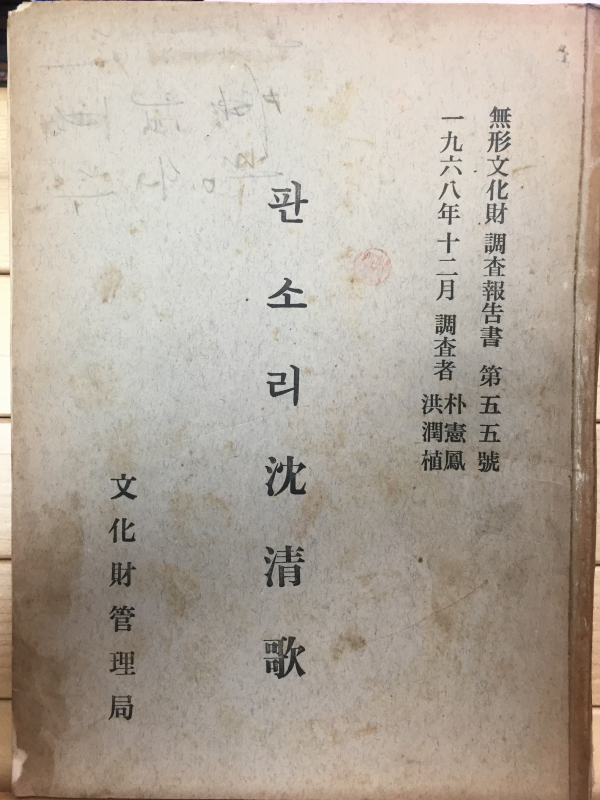 無形文化財 調査報告書 第五五號
一九六八年十二月 調査者 朴憲鳳
洪潤植
판소리 沈清歌
文化財管理局